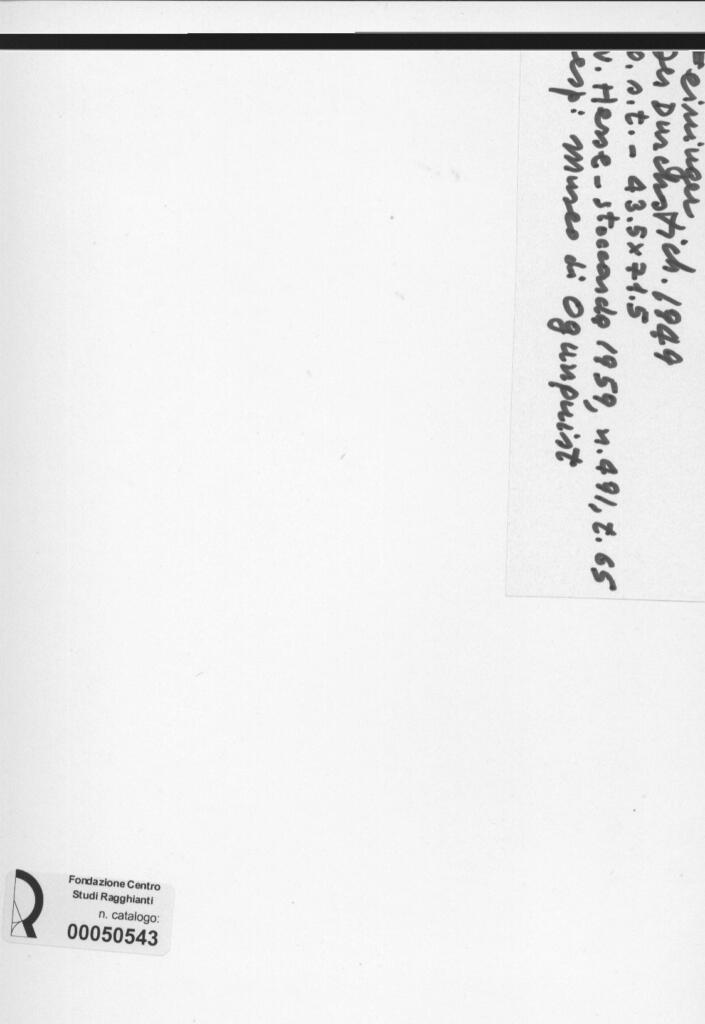 Feininger
Der Durchstich. 1949
o. s. t. - 43.5x71.5
v. Hesse - Stoccarda 1959, n. 491, t. 65
esp: Museo di Ogunquist
Fondazione Centro
Studi Ragghianti
n. catalogo:
00050543